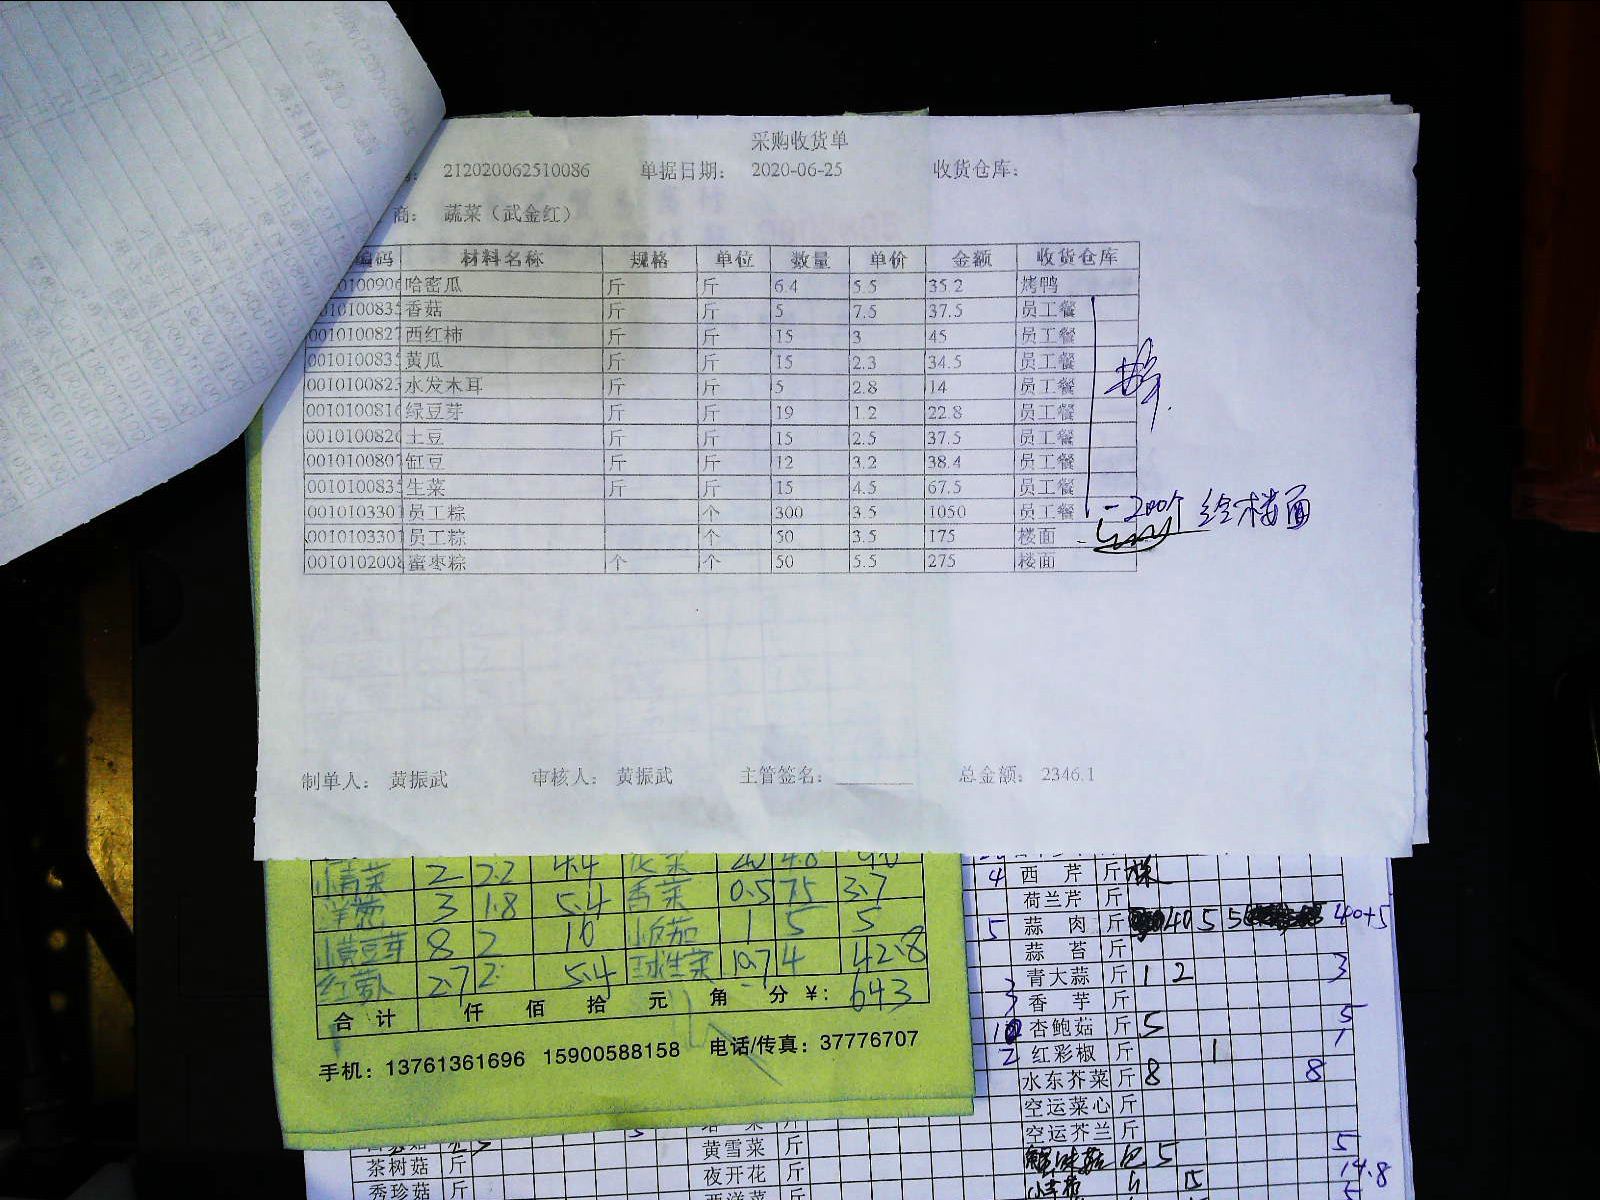 采购收货单
212020062510086 单据日期： 2020-06-25 收货仓库：
商： 蔬菜（武金红）
编码 材料名称 规格 单位 数量 单价 金额 收货仓库
0100906 哈密瓜 斤 斤 6.4 5.5 35.2 烤鸭
0010100835 香菇 斤 斤 5 7.5 37.5 员工餐
0010100827 西红柿 斤 斤 15 3 45 员工餐
0010100835 黄瓜 斤 斤 15 2.3 34.5 员工餐
0010100823 水发木耳 斤 斤 5 2.8 14 员工餐
0010100816 绿豆芽 斤 斤 19 1.2 22.8 员工餐
0010100826 土豆 斤 斤 15 2.5 37.5 员工餐
0010100807 缸豆 斤 斤 12 3.2 38.4 员工餐
0010100835 生菜 斤 斤 15 4.5 67.5 员工餐
0010103301 员工粽 个 300 3.5 1050 员工餐 -200个 给楼面
0010103301 员工粽 个 50 3.5 175 楼面
0010102008 蜜枣粽 个 个 50 5.5 275 楼面
制单人： 黄振武 审核人： 黄振武 主管签名： 总金额： 2346.1
小青菜 2 2.2 4.4
洋葱 3 1.8 5.4 香菜 0.5 75 3.7
小黄豆芽 8 2 16 1 5 5
2.7 2 5.4 球生菜 10.7 4 42.8
合计 仟 佰 拾 元 角 分 ￥： 643
手机：13761361696 15900588158 电话/传真：37776707
4 西芹 斤
荷兰芹 斤
5 蒜肉 斤 40 5 5 40+5
蒜苔 斤
3 青大蒜 斤 1 2 3
3 香芋 斤
10 杏鲍菇 斤 5 5
2 红彩椒 斤 1 1
水东芥菜 斤 8 8
空运菜心 斤
空运芥兰 斤
黄雪菜 斤 5 5
茶树菇 斤 夜开花 斤 15 14.8
秀珍菇 斤 西洋菜 斤